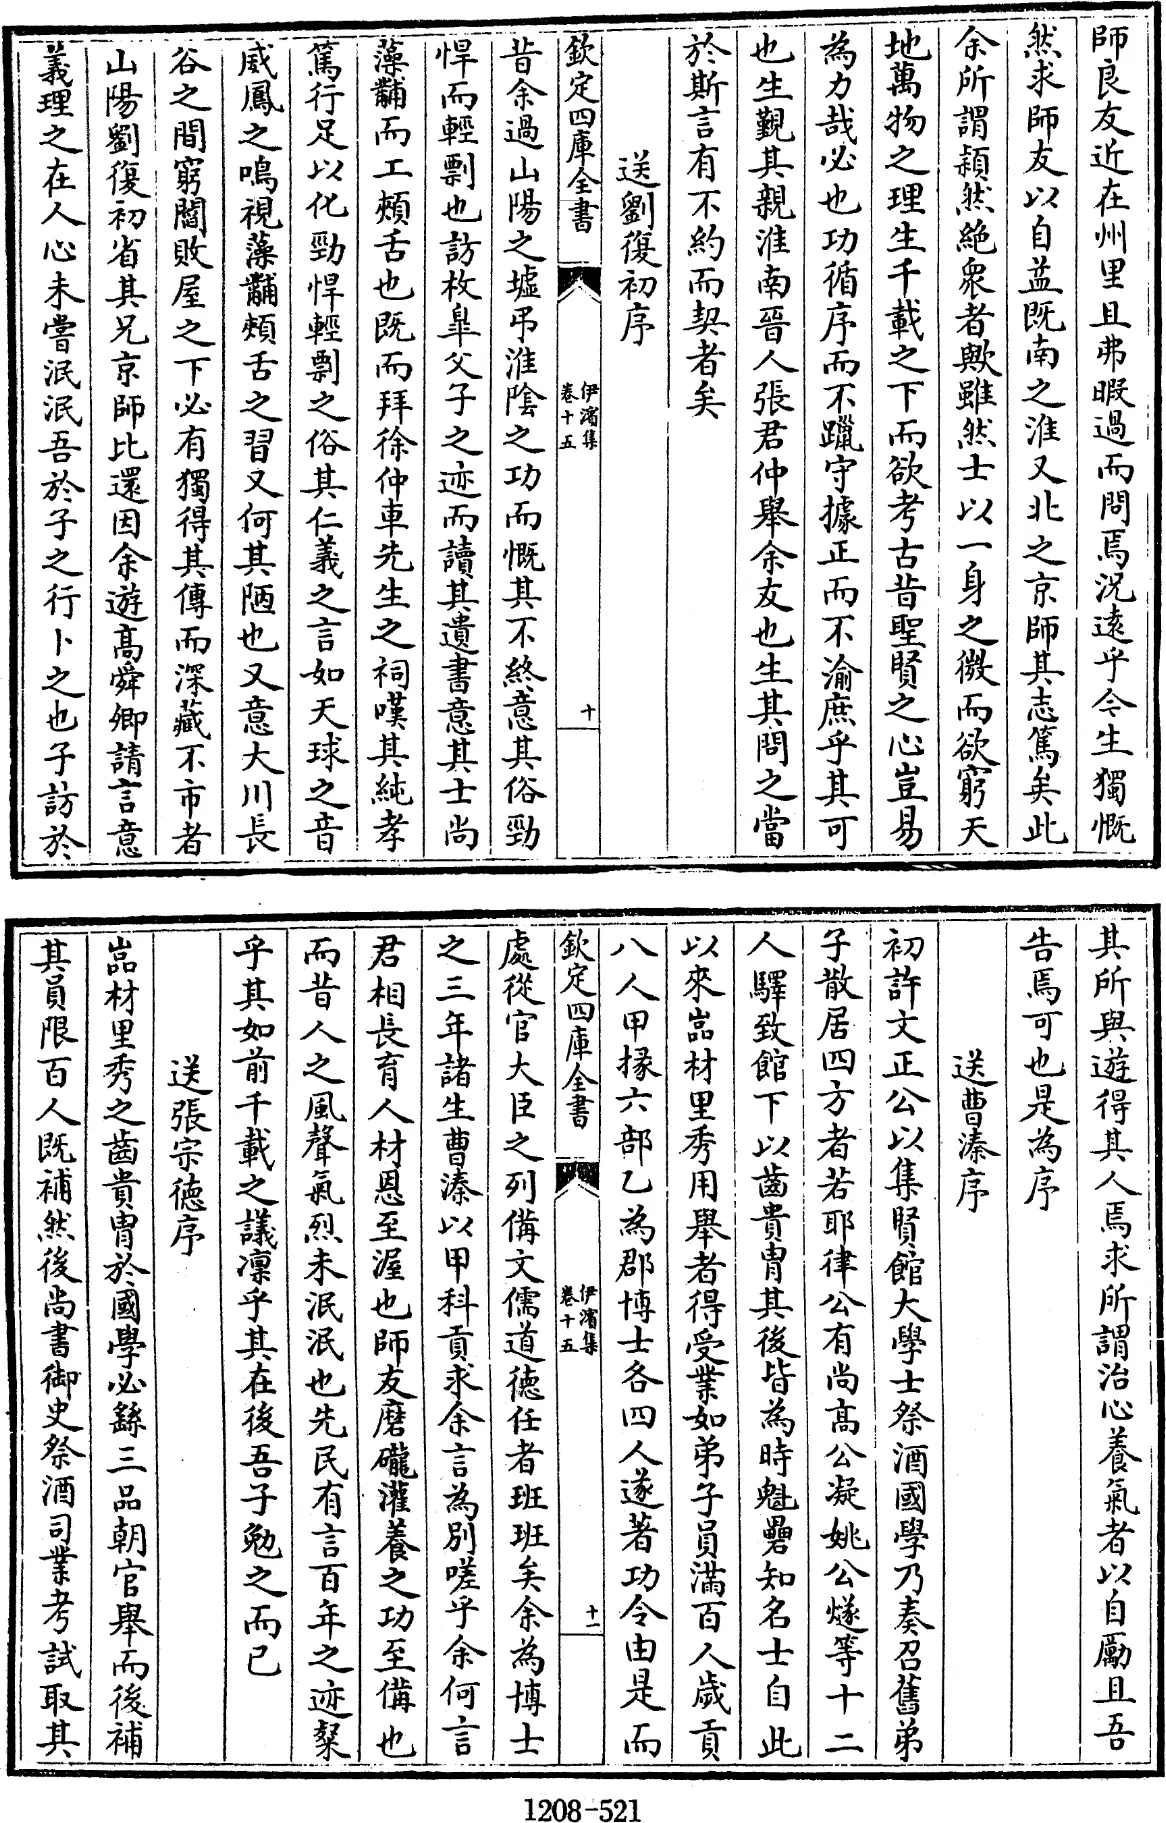 師良友近在州里且弗暇過而問焉況遠乎今生獨慨
然求師友以自益既南之淮又北之京師其志篤矣此
余所謂頴然絶衆者歟雖然士以一身之微而欲窮天
地萬物之理生千載之下而欲考古昔聖賢之心豈易
為力哉必也功循序而不躐守據正而不渝庶乎其可
也生覲其親淮南晉人張君仲舉余友也生其問之當
於斯言有不約而契者矣
送劉復初序
欽定四庫全書
伊濱集
卷十五
十
昔余過山陽之墟弔淮陰之功而慨其不終意其俗勁
悍而輕剽也訪枚臯父子之迹而讀其遺書意其士尚
藻黼而工頰舌也既而拜徐仲車先生之祠嘆其純孝
篤行足以化勁悍輕剽之俗其仁義之言如天球之音
威鳳之鳴視藻黼頰舌之習又何其陋也又意大川長
谷之間窮閻敗屋之下必有獨得其傳而深藏不市者
山陽劉復初省其兄京師比還因余遊髙舜卿請言意
義理之在人心未嘗泯泯吾於子之行卜之也子訪於
其所與遊得其人焉求所謂治心養氣者以自勵且吾
告焉可也是為序
送曹溱序
初許文正公以集賢館大學士祭酒國學乃奏召舊弟
子散居四方者若耶律公有尚髙公凝姚公燧等十二
人驛致館下以齒貴胄其後皆為時魁礨知名士自此
以來嵓材里秀用舉者得受業如弟子員滿百人歲貢
八人甲掾六部乙為郡博士各四人遂著功令由是而
欽定四庫全書
伊濱集
卷十五
十一
處從官大臣之列備文儒道徳任者班班矣余為博士
之三年諸生曹溱以甲科貢求余言為别嗟乎余何言
君相長育人材恩至渥也師友磨礲灌養之功至備也
而昔人之風聲氣烈未泯泯也先民有言百年之迹粲
乎其如前千載之議凜乎其在後吾子勉之而已
送張宗徳序
嵓材里秀之齒貴胄於國學必繇三品朝官舉而後補
其員限百人既補然後尚書御史祭酒司業考試取其
1208-521